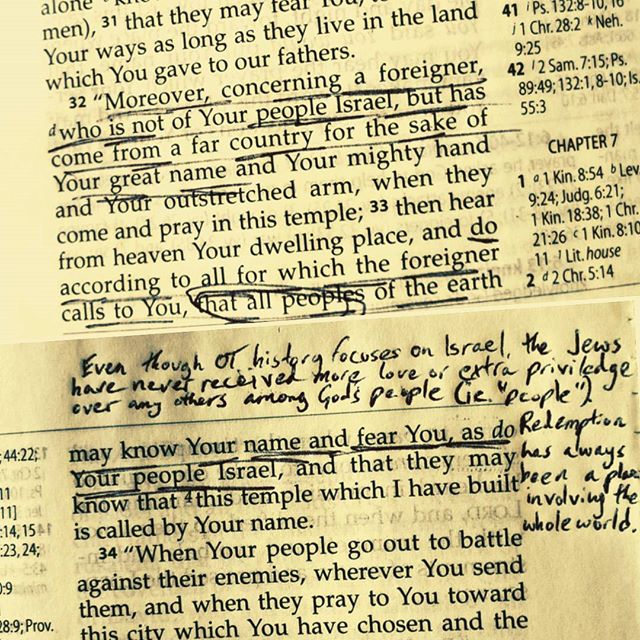 alone
men), 31 that they may fear You, to
Your ways as long as they live in the land
which You gave to our fathers.
32 "Moreover, concerning a foreigner,
d who is not of Your people Israel, but has
come from a far country for the sake of
Your great name and Your mighty hand
and Your outstretched arm, when they
come and pray in this temple; 33 then hear
from heaven Your dwelling place, and do
according to all for which the foreigner
calls to You, that all peoples of the earth
41 i Ps. 132:8-10, 16
j 1 Chr. 28:2 k Neh.
9:25
42 l 2 Sam. 7:15; Ps.
89:49; 132:1, 8-10; Is.
55:3
CHAPTER 7
1 a 1 Kin. 8:54 b Lev.
9:24; Judg. 6:21;
1 Kin. 18:38; 1 Chr.
21:26 c 1 Kin. 8:10
11 l Lit. house
2 d 2 Chr. 5:14
Even though OT history focuses on Israel, the Jews
have never received more love or extra priviledge
over any others among God's people (ie. "people").
Redemption
has always
been a plan
involving the
whole world.
44:22;
11
11]
:14, 15
:23, 24;
0:9
28:9; Prov.
may know Your name and fear You, as do
Your people Israel, and that they may
know that 4 this temple which I have built
is called by Your name.
34 "When Your people go out to battle
against their enemies, wherever You send
them, and when they pray to You toward
this city which You have chosen and the